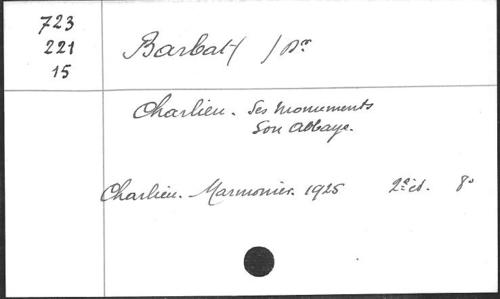 723
221
15
Barbat (Dr
Charlieu. Ses Monuments
Son Abbaye.
Charlieu. Marmonier. 1925 2e éd. 8o